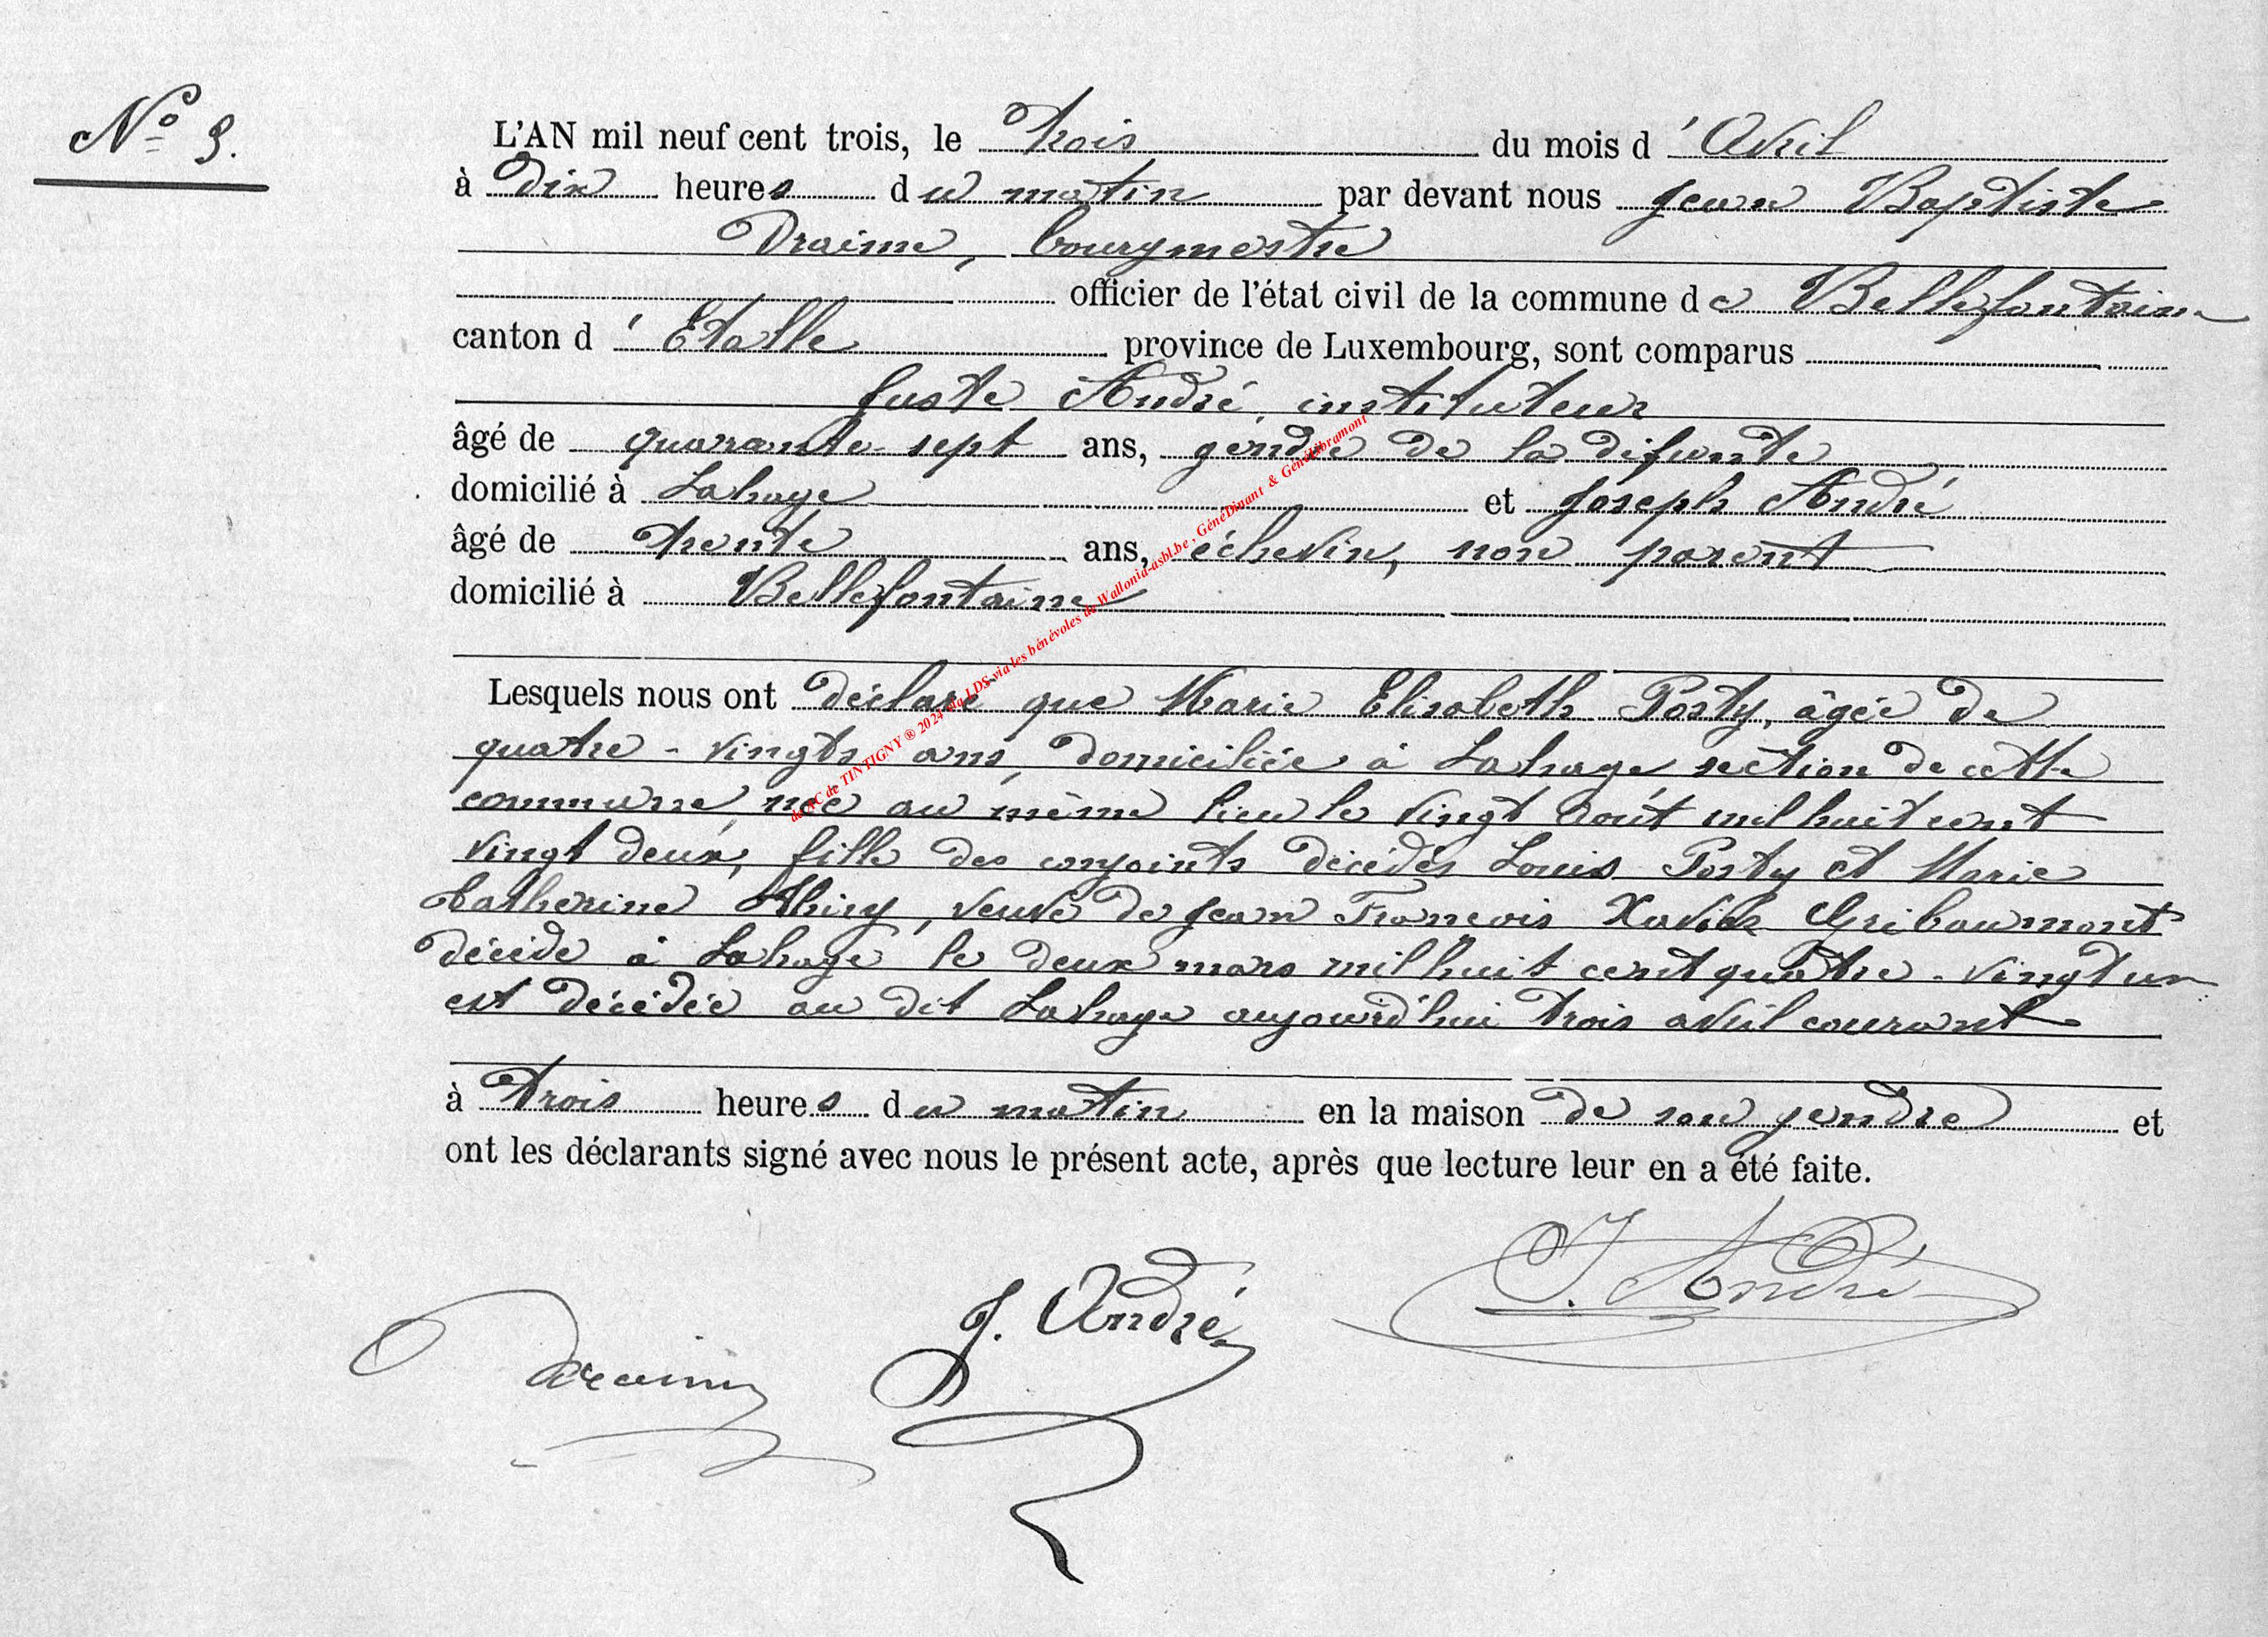 N° 9.
L'AN mil neuf cent trois, le trois du mois d'Avril
à dix heures du matin par devant nous Jean Baptiste
Draime, bourgmestre
officier de l'état civil de la commune de Bellefontaine
canton d'Etalle province de Luxembourg, sont comparus
Juste André, instituteur
âgé de quarante-sept ans, gendre de la défunte
domicilié à Lahage et Joseph André
âgé de trente ans, échevin, non parent
domicilié à Bellefontaine
Lesquels nous ont déclaré que Marie Elisabeth Posty, âgée de
quatre-vingts ans, domiciliée à Lahage section de cette
commune, née au même lieu le vingt août mil huit cent
vingt deux, fille des conjoints décédés Louis Posty et Marie
Catherine Thiry, veuve de Jean François Xavier Gribaumont
décédé à Lahage le deux mars mil huit cent quatre-vingt un
est décédée au dit Lahage aujourd'hui trois avril courant
à trois heures du matin en la maison de son gendre et
ont les déclarants signé avec nous le présent acte, après que lecture leur en a été faite.
J. André
J. André
Draime
de AC de TINTIGNY ® 2024 via LDS via les bénévoles de Wallonia-asbl.be, GénéDinant & GénéLibramont